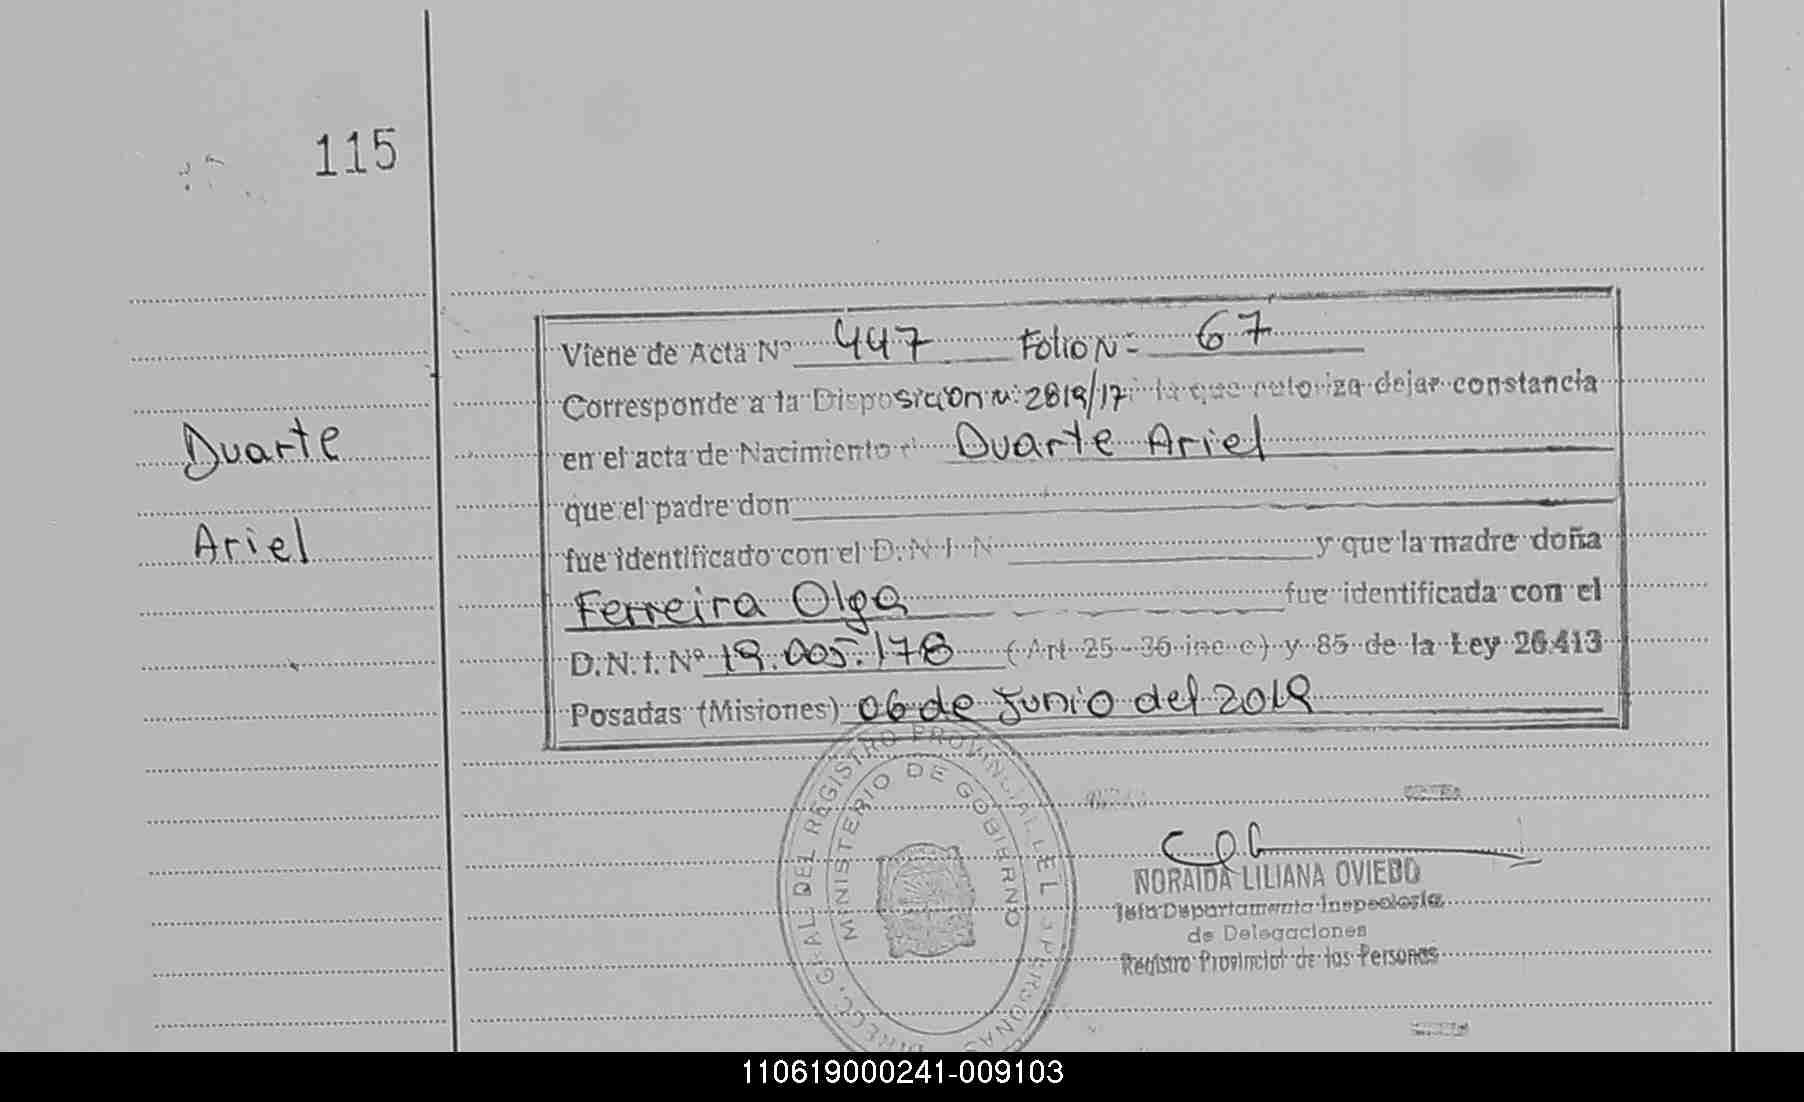 115
Viene de Acta Nº 447 Folio Nº 67
Corresponde a la Disposición Nº 2819/17: la que autoriza dejar constancia
Duarte
en el acta de Nacimiento Duarte Ariel
que el padre don
Ariel
fue identificado con el D.N.I. N y que la madre doña
Ferreira Olga fue identificada con el
D.N.I. Nº 19.005.178 (Art 25-36 inc c) y 85 de la Ley 26.413
Posadas (Misiones) 06 de Junio del 2019
DIRECC. GRAL DEL REGISTRO PROVINCIAL PERSONAS
MINISTERIO DE GOBIERNO
NORAIDA LILIANA OVIEDO
Jefa Departamento Inspectoria
de Delegaciones
Registro Provincial de las Personas
110619000241-009103